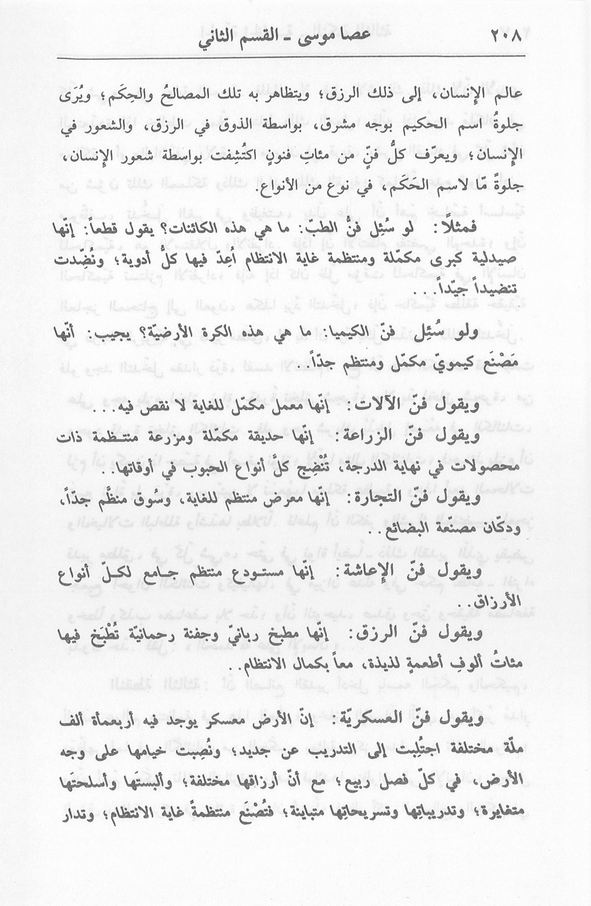 ٢٠٨ عصا موسى - القسم الثاني
عالم الإنسان، إلى ذلك الرزق؛ ويتظاهر به تلك المصالحُ والحِكَم؛ ويُرَى
جلوةُ اسم الحكيم بوجه مشرق، بواسطة الذوق في الرزق، والشعور في
الإنسان؛ ويعرّف كلُّ فنٍّ من مئاتِ فنونٍ اكتُشِفت بواسطة شعور الإنسان،
جلوةً مّا لاسم الحَكَم، في نوع من الأنواع.
فمثلاً: لو سُئِل فنّ الطبّ: ما هي هذه الكائنات؟ يقول قطعاً: إنّها
صيدلية كبرى مكمّلة ومنتظمة غاية الانتظام اُعِدّ فيها كلُّ أدوية؛ ونُضِدت
تنضيداً جيّداً...
ولو سُئِل فنّ الكيميا: ما هي هذه الكرة الأرضيّة؟ يجيب: أنّها
مَصْنَع كيمويّ مكمّل ومنتظم جدّاً..
ويقول فنّ الآلات: إنّها معمل مكمّل للغاية لا نقص فيه...
ويقول فنّ الزراعة: إنّها حديقة مكمّلة ومزرعة منتظمة ذات
محصولات في نهاية الدرجة، تَنْضِج كلُّ أنواع الحبوب في أوقاتها..
ويقول فنّ التجارة: إنّها معرض منتظم للغاية، وسُوق منظّم جدّاً،
ودكّان مصنّعة البضائع..
ويقول فنّ الإعاشة: إنّها مستودع منتظم جامع لكلّ أنواع
الأرزاق..
ويقول فنّ الرزق: إنّها مطبخ ربانيّ وجفنة رحمانيّة تُطْبَخ فيها
مئاتُ ألوفِ أطعمةٍ لذيذة، معاً بكمال الانتظام..
ويقول فنّ العسكريّة: إنّ الأرض معسكر يوجد فيه أربعمأة ألف
ملّة مختلفة اجتُلِبت إلى التدريب عن جديد؛ ونُصِبت خيامها على وجه
الأرض، في كلّ فصل ربيع؛ مع أنّ أرزاقها مختلفة؛ وألبستَها وأسلحتَها
متغايرة؛ وتدريباتِها وتسريحاتِها متباينة؛ فتُصْنَع منتظمةً غاية الانتظام؛ وتدار